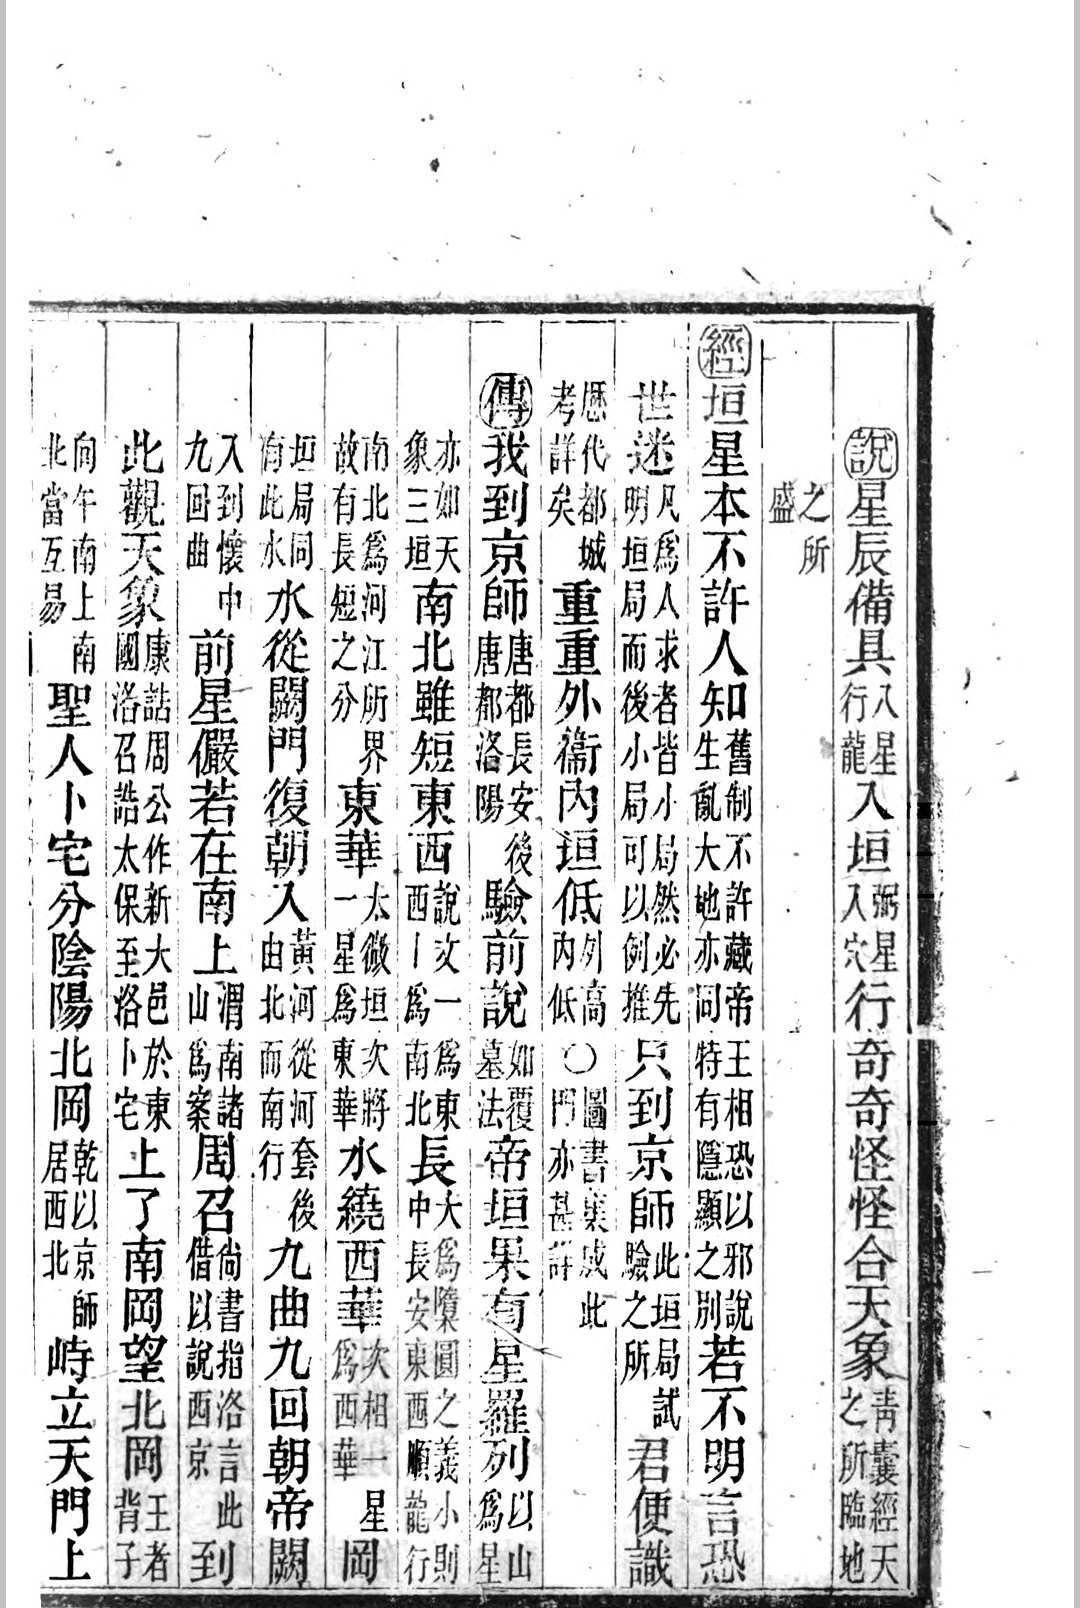 說星辰備具八星行龍入垣弼星入穴行奇奇怪怪合天象靑囊經天之所臨地
之所盛
經垣星本不許人知舊制不許藏帝王相恐以邪說生亂大地亦同特有隱顯之別若不明言恐
世迷凡爲人求者皆小局然必先明垣局而後小局可以例推只到京師此垣局試驗之所君便識
歷代都城考詳矣重重外衞內垣低外高內低〇圖書集成此門亦甚詳
傳我到京師唐都長安後唐都洛陽驗前說如覆墓法帝垣果有星羅列以山爲星
亦如天象三垣南北雖短東西說文一爲東西丨爲南北長大爲隋圓之義小則中長安東西順龍行
南北爲河江所界故有長短之分東華太微垣次將一星爲東華水繞西華次相一星爲西華岡
垣局同有此水水從闕門復朝入黃河從河套後由北而南行九曲九回朝帝闕
入到懷中九回曲前星儼若在南上渭南諸山爲案周召尙書指洛言此借以說西京到
此觀天象康誥周公作新大邑於東國洛召誥太保至洛卜宅上了南岡望北岡王者背子
向午南上南北當互易聖人卜宅分陰陽北岡乾以京師居西北峙立天門上